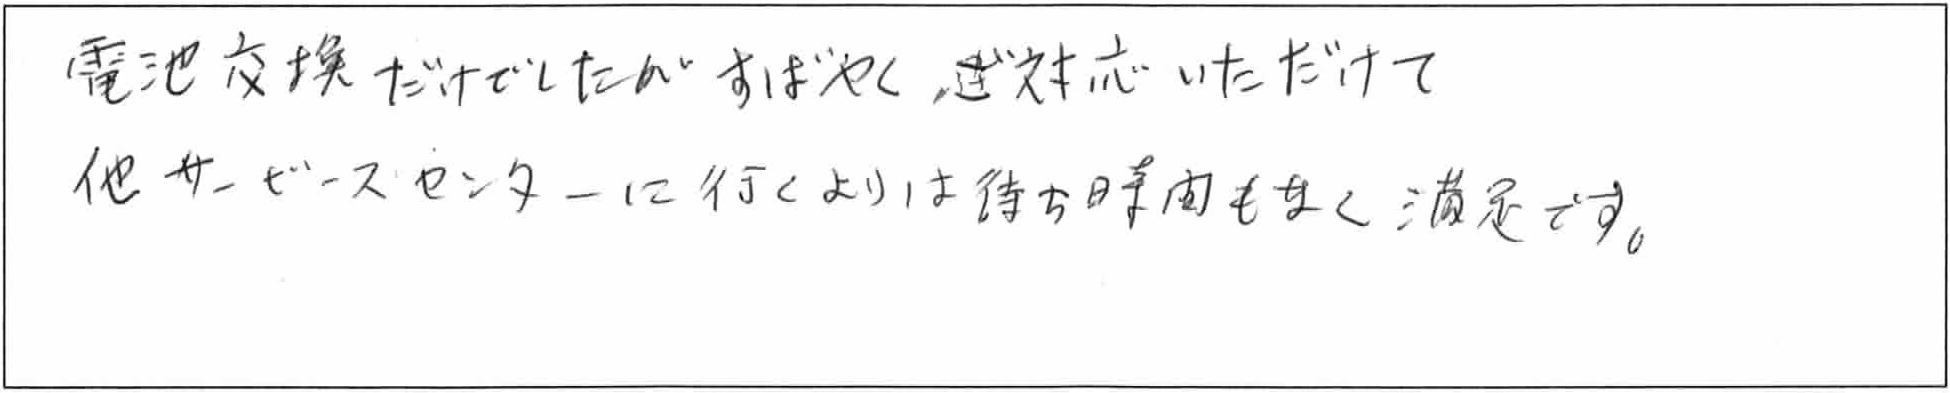 電池交換だけでしたがすばやく、ご対応いただけて
他サービスセンターに行くよりは待ち時間もなく満足です。